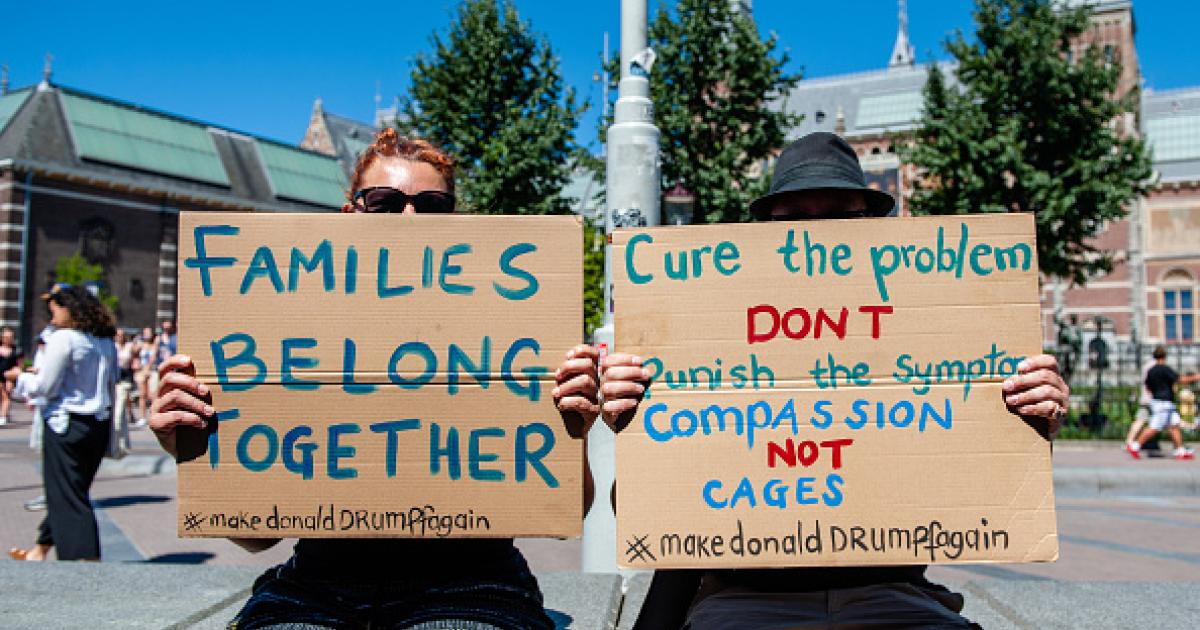 FAMILIES
BELONG
TOGETHER
#make donald DRUMPfagain
Cure the problem
DON'T
Punish the sympto
COMPASSION
NOT
CAGES
#make donald DRUMPfagain